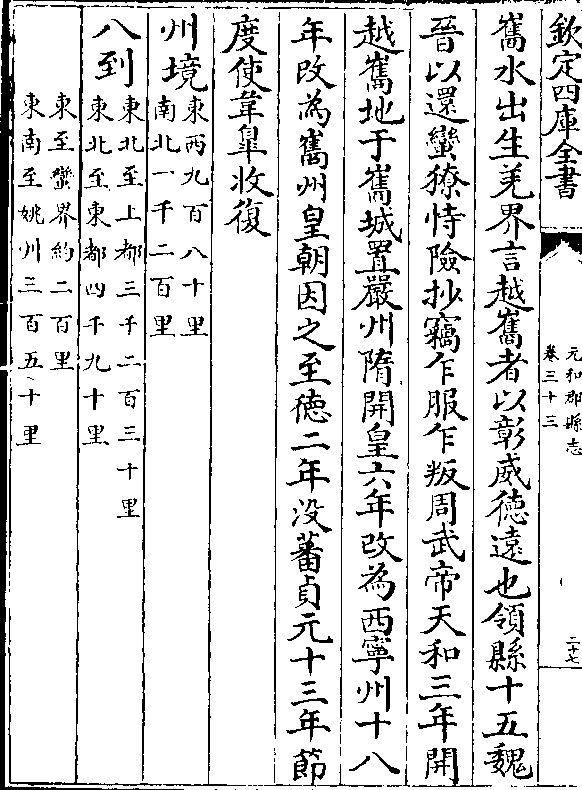 欽定四庫全書
元和郡縣志
卷三十三
二十七
巂水出生羌界言越巂者以彰威德遠也領縣十五魏
晉以還蠻獠恃險抄竊乍服乍叛周武帝天和三年開
越巂地于巂城置嚴州隋開皇六年改為西寧州十八
年改為巂州皇朝因之至德二年没蕃貞元十三年節
度使韋臯收復
州境東西九百八十里
南北一千二百里
八到東北至上都三千二百三十里
東北至東都四千九十里
東至蠻界約二百里
東南至姚州三百五十里